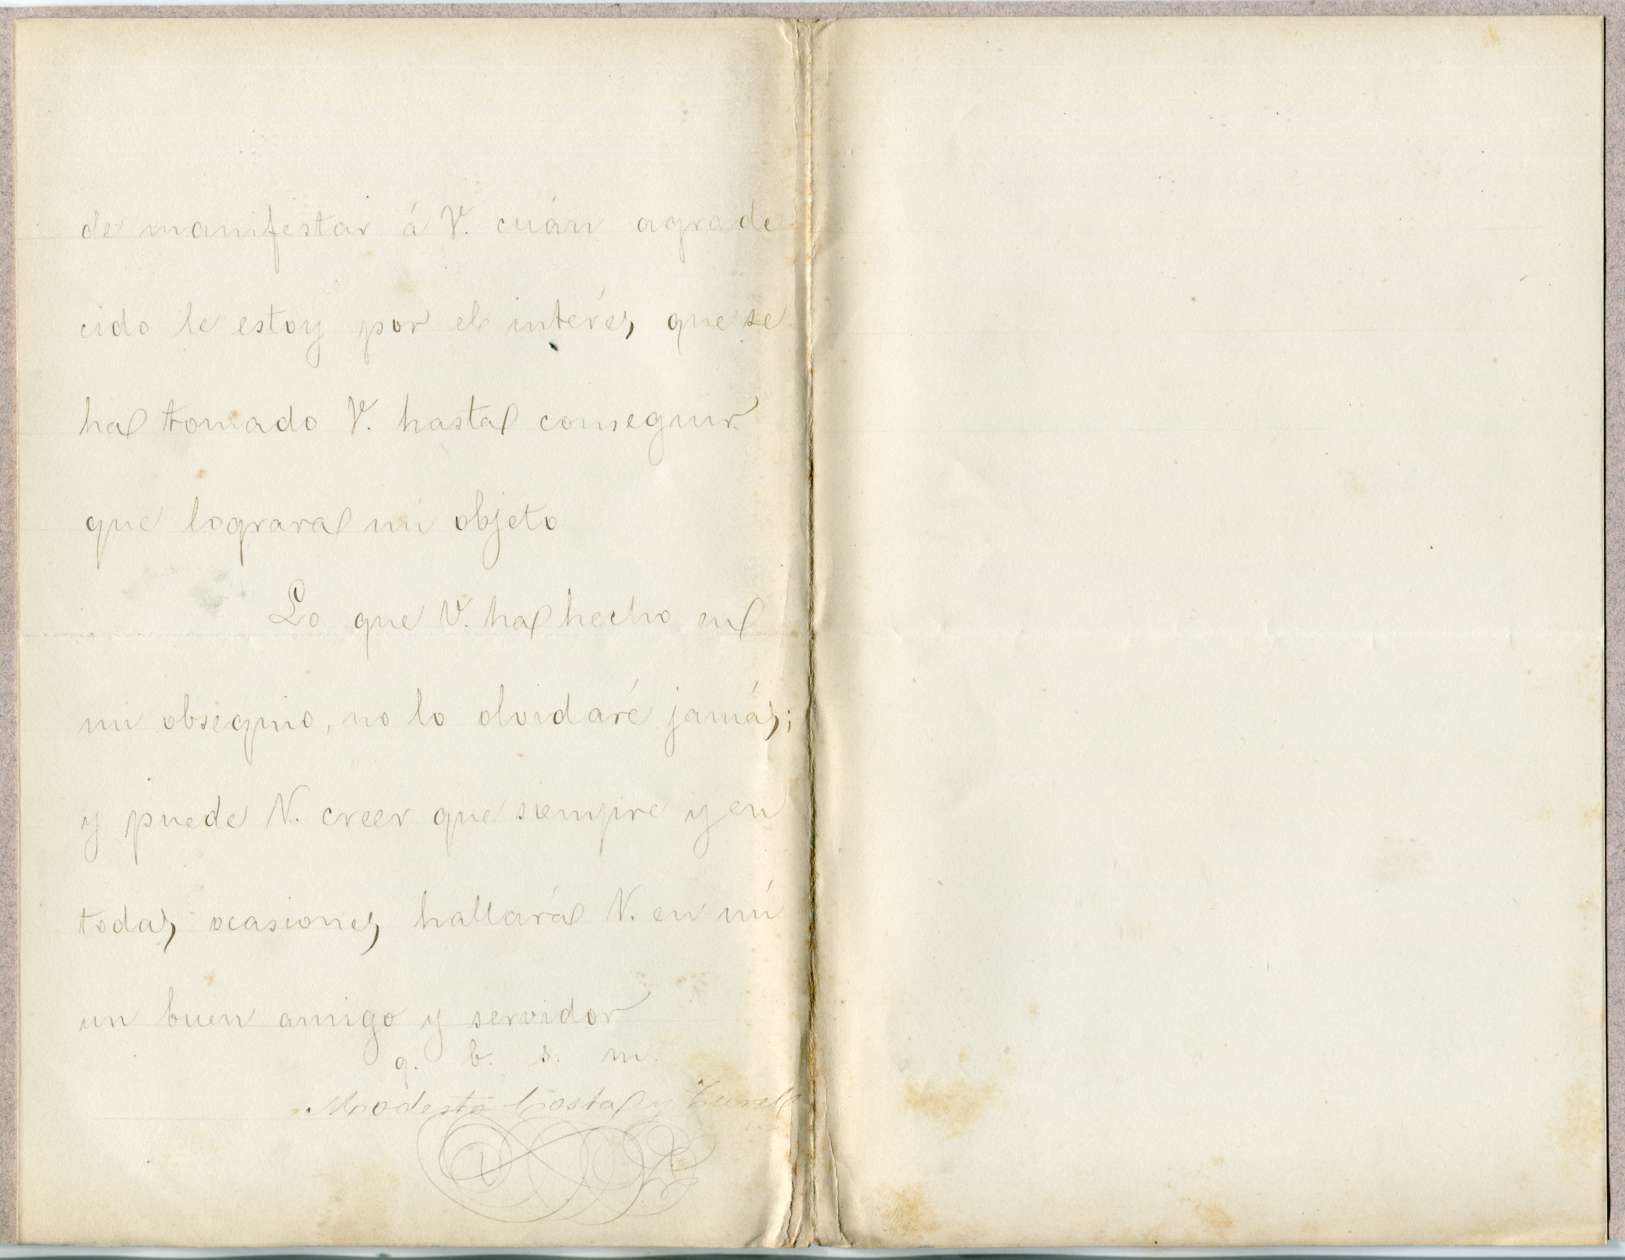 de manifestar á V. cuán agrade
cido le estoy por el interés que se
ha tomado V. hasta conseguir
que lograra mi objeto
Lo que V. ha hecho en
mi obsequio, no lo olvidaré jamás;
y puede V. creer que siempre y en
todas ocasiones hallará V. en mí
un buen amigo y servidor
q. b. s. m.
Modesto Costa y Turell